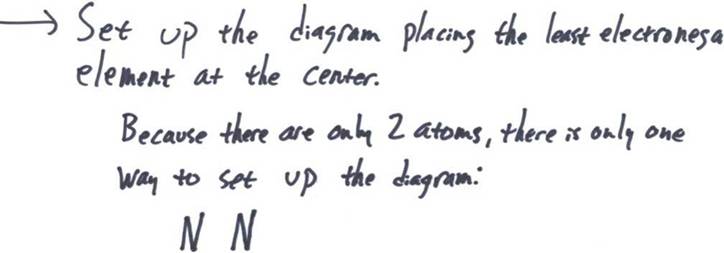 → Set up the diagram placing the least electronega
element at the center.
Because there are only 2 atoms, there is only one
way to set up the diagram:
N N